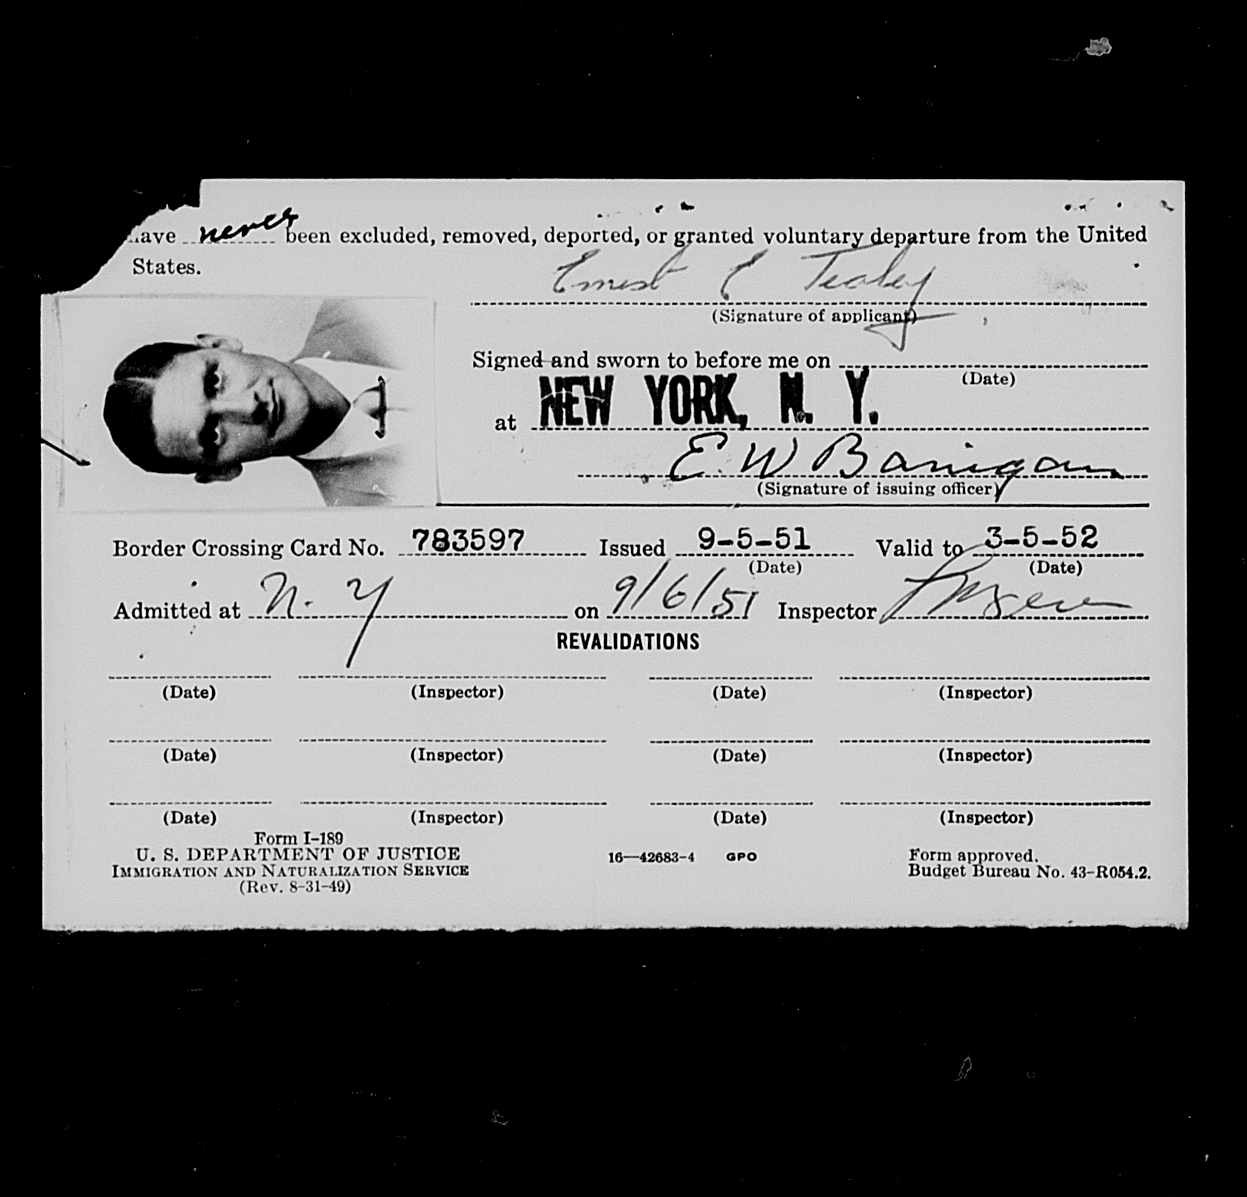 have never been excluded, removed, deported, or granted voluntary departure from the United
States.
Ernest E
(Signature of applicant)
Signed and sworn to before me on
(Date)
at NEW YORK, N. Y.
E. W Banigan
(Signature of issuing officer)
Border Crossing Card No. 783597 Issued 9-5-51 Valid to 3-5-52
(Date) (Date)
Admitted at N. Y on 9/6/51 Inspector
REVALIDATIONS
(Date) (Inspector) (Date) (Inspector)
(Date) (Inspector) (Date) (Inspector)
(Date) (Inspector) (Date) (Inspector)
Form I-189
U. S. DEPARTMENT OF JUSTICE
IMMIGRATION AND NATURALIZATION SERVICE
(Rev. 8-31-49)
16—42683-4 GPO
Form approved.
Budget Bureau No. 43-R054.2.